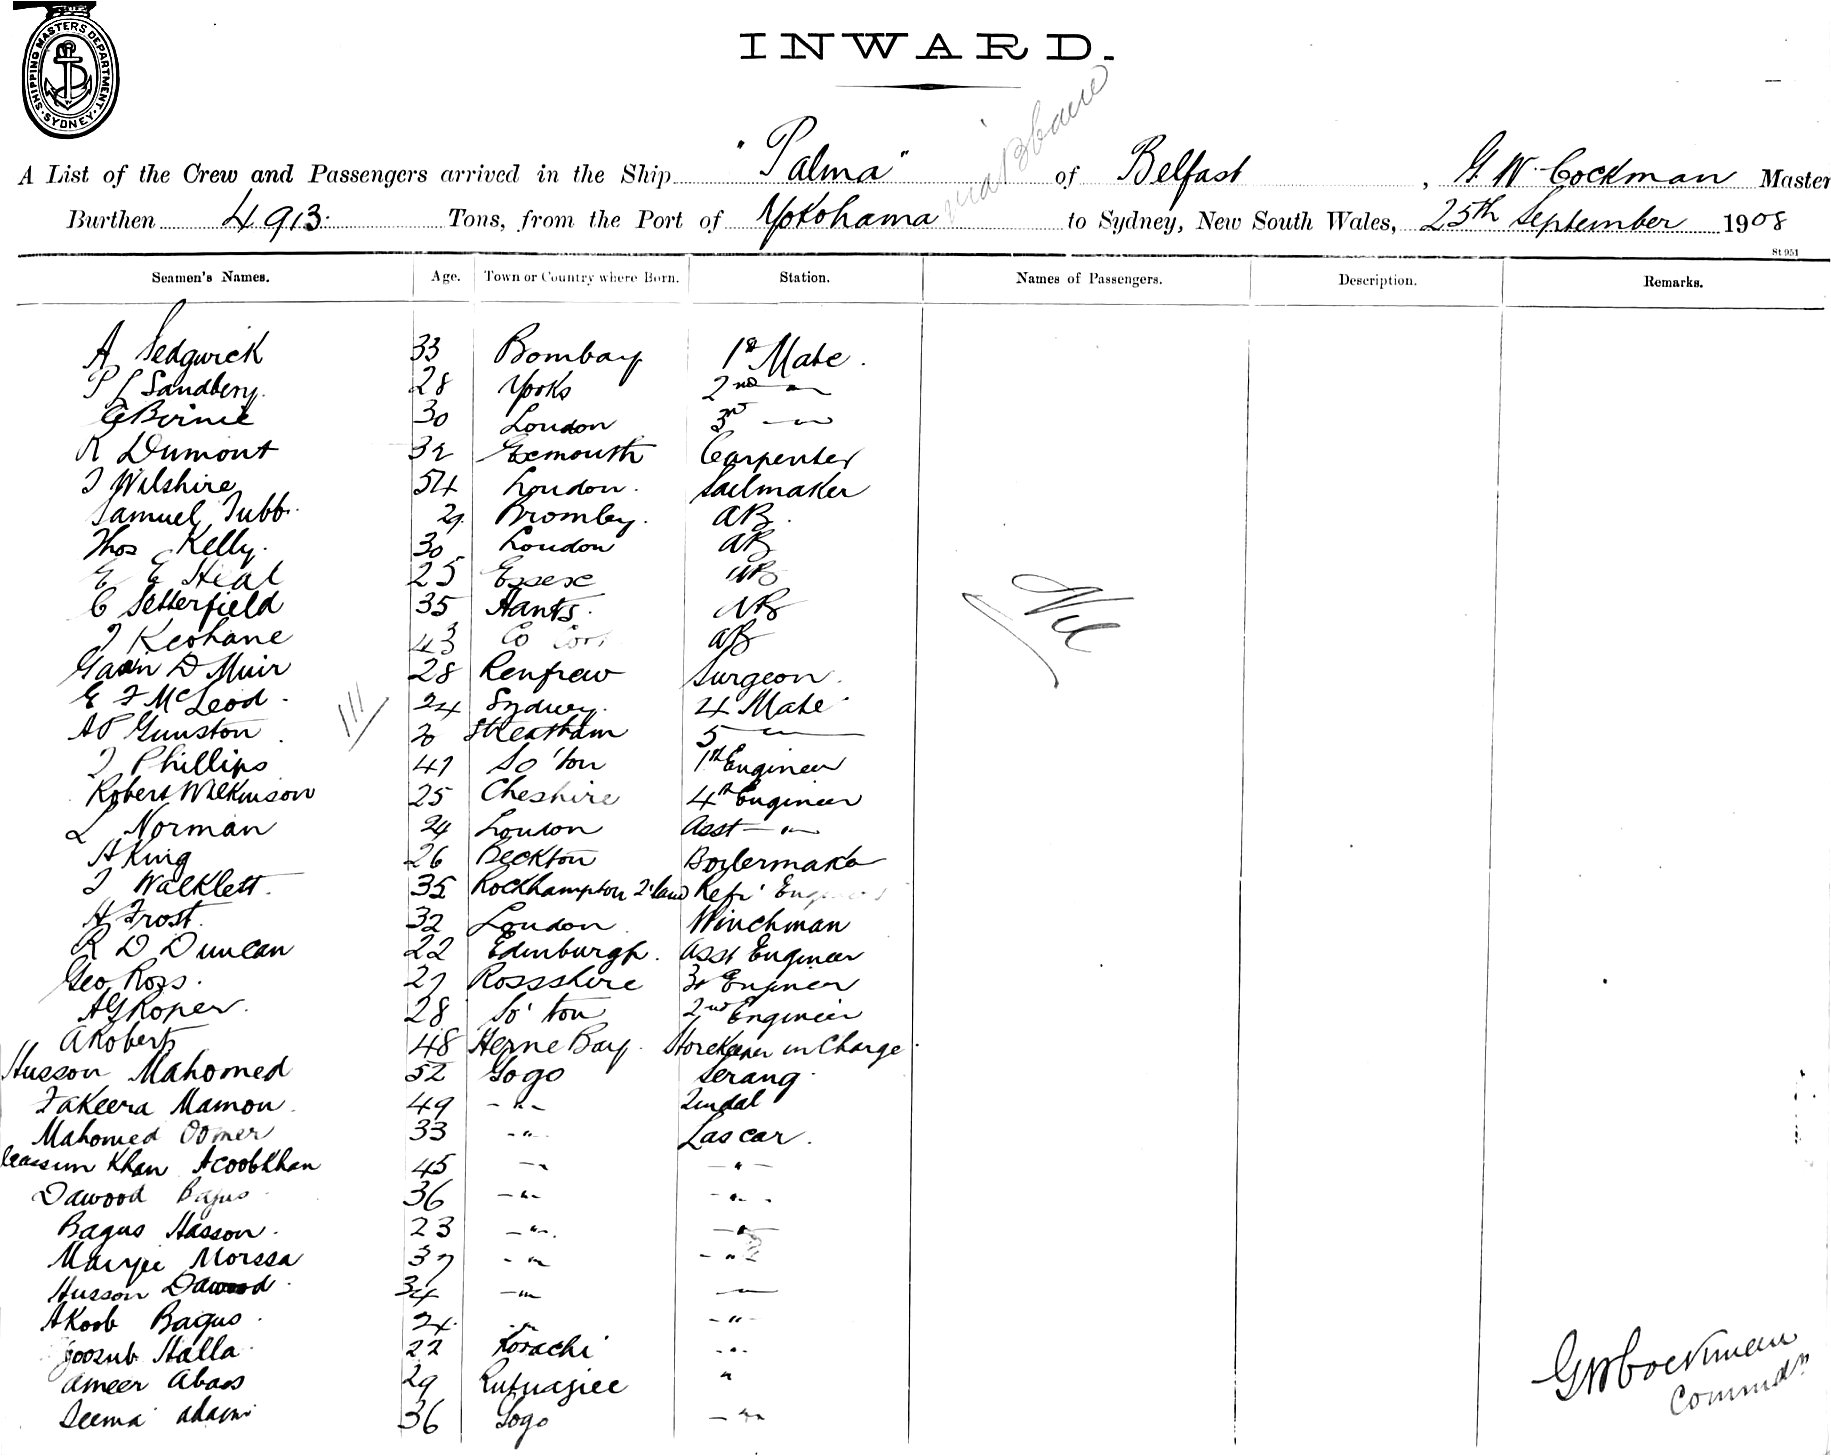 SHIPPING MASTERS DEPARTMENT · SYDNEY ·
INWARD.
via Bbane
A List of the Crew and Passengers arrived in the Ship "Palma" of Belfast, G. W. Cockman Master
Burthen 4913 Tons, from the Port of Yokohama to Sydney, New South Wales, 25th September 1908
St 951
Seamen's Names. Age. Town or Country where Born. Station. Names of Passengers. Description. Remarks.
A Sedgwick 33 Bombay 1st Mate.
P L Sandbery. 28 Yorks 2nd —"—
G Birnie 30 London 3rd —"—
R Dumont 32 Exmouth Carpenter
J Wilshire 54 London. Sailmaker
Samuel Tubb. 29 Bromley. AB.
Thos Kelly. 30 London AB
E E Heal 25 Essex AB
C Setterfield 35 Hants. AB
J Keohane 43 Co Cork AB
Nil
Gavin D Muir 28 Renfrew Surgeon.
E F McLeod. 24 Sydney. 4 Mate
A P Gunston. 20 Streatham 5 —"—
J Phillips 41 So'ton 1st Engineer
Robert Wilkinson 25 Cheshire 4th Engineer
L Norman 24 London Asst —"—
A King 26 Beckton Boilermaker
J Walklett. 35 Rockhampton Q'land Refr' Engineer
H Frost. 32 London. Winchman
R D Duncan 22 Edinburgh. Asst Engineer
Geo Ross. 27 Rossshire 3rd Engineer
A G Roper. 28 So'ton 2nd Engineer
A Roberts 48 Herne Bay. Storekeeper in Charge.
Husson Mahomed 52 Gogo Serang.
Fakeera Mamon. 49 -"- Tindal
Mahomed Oomer 33 -"- Lascar.
Cassum Khan Acoobkhan 45 —" —"—
Dawood Bagus 36 —"- -"-
Bagus Hasson. 23 —"-. —"—
Morssa 37 -"- -"-
Husson Dawood. 34 —"- —"—
Akoob Bagus. 24. -"- -"-
Joosub Halla. 22 Korachi -"-
Ameer Abass 29 "
Seema Adam 36 Gogo —"-
GWCockman
Commdr